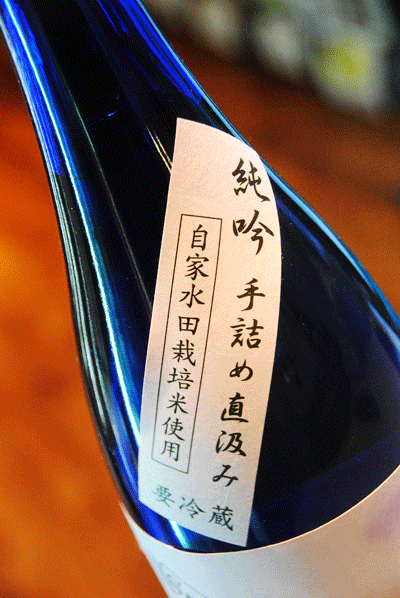 純吟 手詰め直汲み
自家水田栽培米使用
要冷蔵